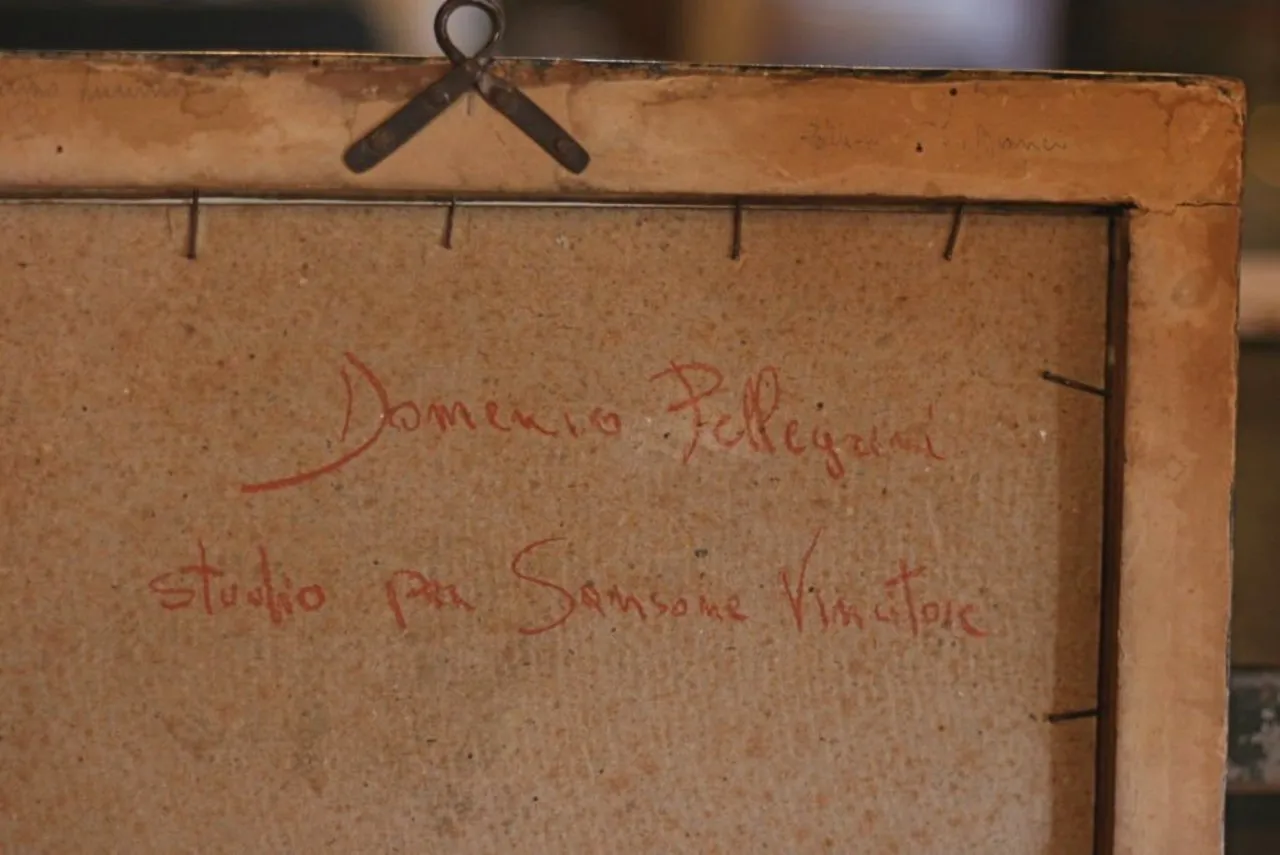 Domenico Pellegrini
studio per Sansone Vincitore